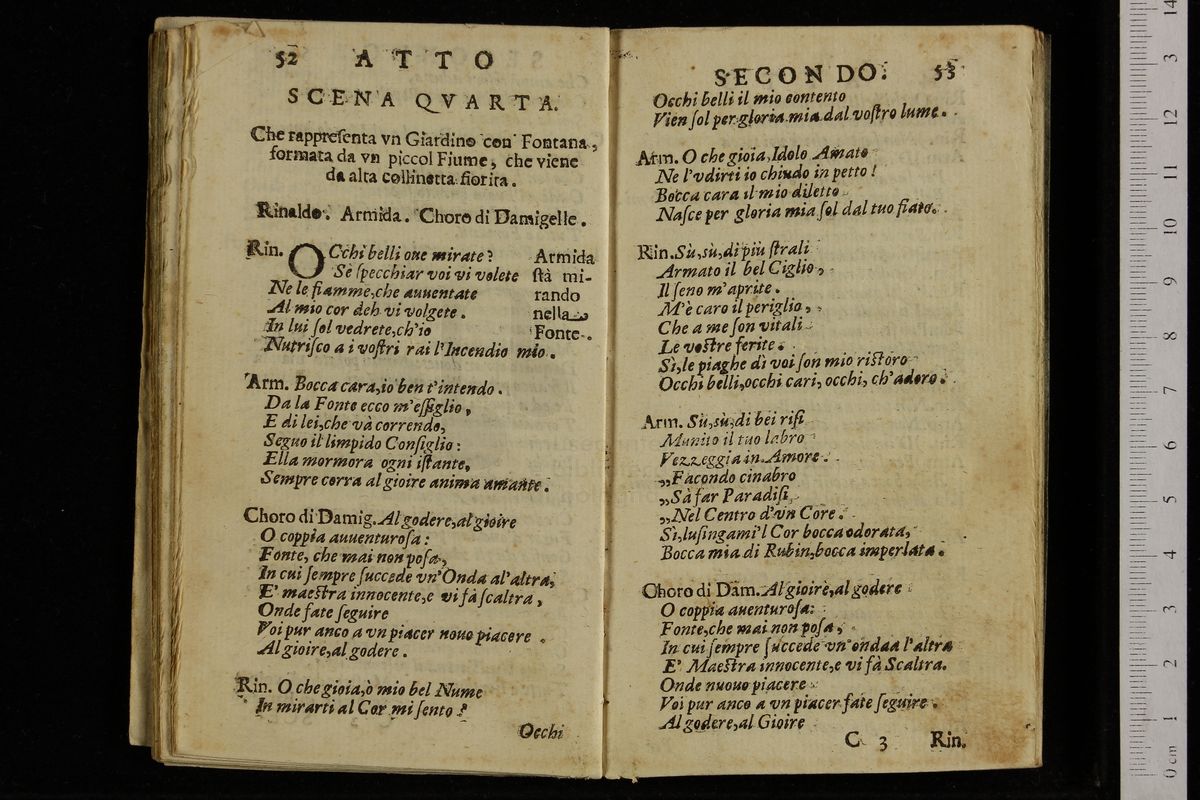 52 ATTO
SCENA QVARTA.
Che rappreſenta vn Giardino con Fontana,
formata da vn piccol Fiume, che viene
da alta collinetta fiorita.
Rinaldo. Armida. Choro di Damigelle.
Rin. OCchi belli oue mirate? Armida
Se ſpecchiar voi vi volete ſtà mi-
Ne le fiamme,che auuentate rando
Al mio cor deh vi volgete. nella
In lui ſol vedrete,ch'io Fonte.
Nutriſco a i voſtri rai l'Incendio mio.
Arm. Bocca cara,io ben t'intendo.
Da la Fonte ecco m'eſſiglio,
E di lei,che và correndo,
Seguo il limpido Conſiglio:
Ella mormora ogni iſtante,
Sempre corra al gioire anima amante.
Choro di Damig. Al godere,al gioire
O coppia auuenturoſa:
Fonte, che mai non poſa,
In cui ſempre ſuccede vn'Onda al'altra,
E' maeſtra innocente,e vi fà ſcaltra,
Onde fate ſeguire
Voi pur anco a vn piacer nouo piacere.
Al gioire,al godere.
Rin. O che gioia,ò mio bel Nume
In mirarti al Cor mi ſento?
Occhi
SECONDO. 53
Occhi belli il mio contento
Vien ſol per gloria mia dal voſtro lume.
Arm. O che gioia, Idolo Amato
Ne l'vdirti io chiudo in petto!
Bocca cara il mio diletto
Naſce per gloria mia ſol dal tuo fiato.
Rin. Sù,sù,di più ſtrali
Armato il bel Ciglio,
Il ſeno m'aprite.
M'è caro il periglio,
Che a me ſon vitali
Le voſtre ferite.
Sì,le piaghe dì voi ſon mio riſtoro
Occhi belli,occhi cari, occhi, ch'adoro.
Arm. Sù,sù,di bei riſi
Munito il tuo labro
Vezzeggia in Amore.
„Facondo cinabro
„Sà far Paradiſi,
„Nel Centro d'vn Core.
Sì,luſingami'l Cor bocca odorata,
Bocca mia di Rubin,bocca imperlata.
Choro di Dam. Al gioire,al godere
O coppia auenturoſa:
Fonte,che mai non poſa,
In cui ſempre ſuccede vn'ondaa l'altra
E' Maeſtra innocente,e vi fà Scaltra.
Onde nuouo piacere
Voi pur anco a vn piacer fate ſeguire.
Al godere,al Gioire
C 3 Rin.